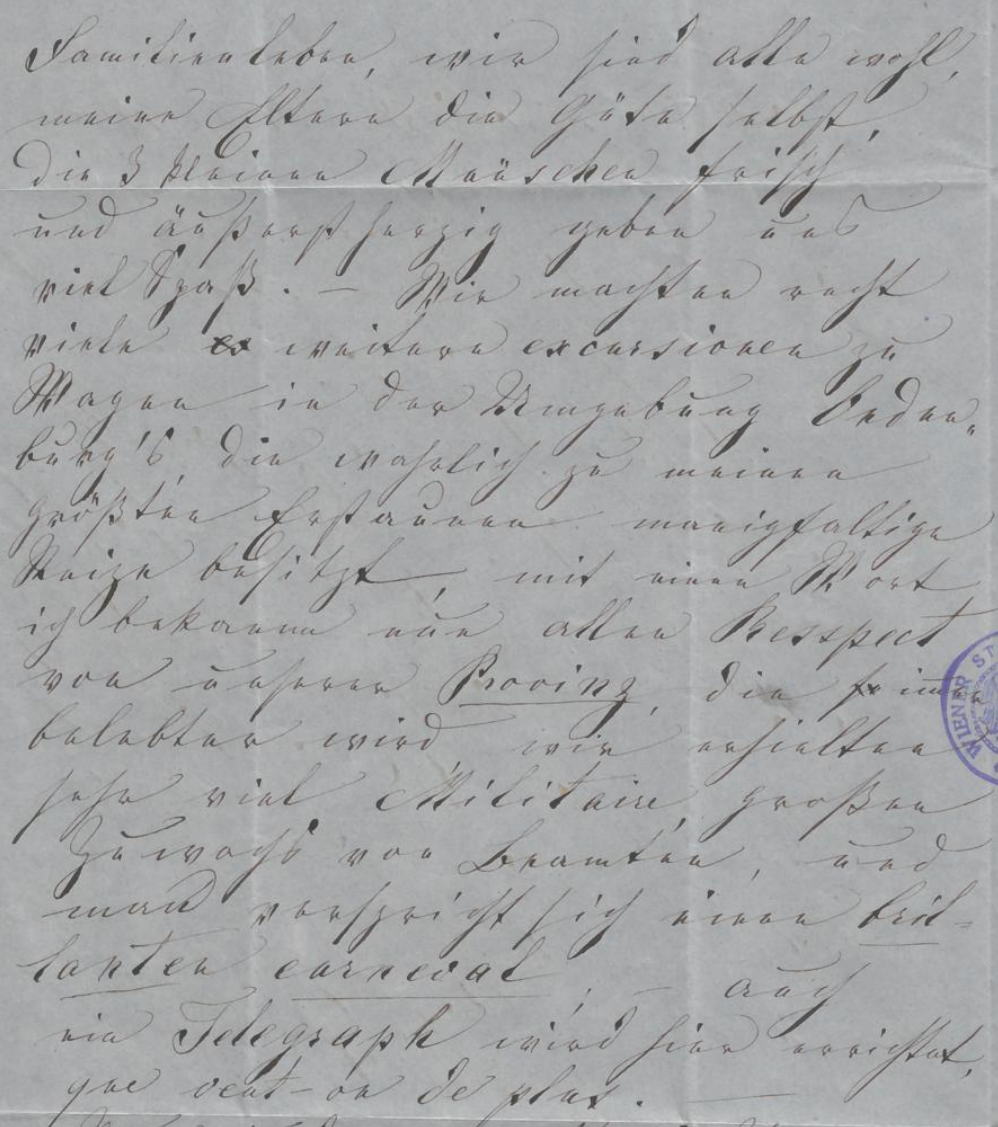 Familienleben, wir sind alle wohl,
meine Eltern die Güte selbst,
die 3 kleinen Mäuschen frisch
und äußerst herzig geben uns
viel Spaß. – Wir machten recht
viele weitere excursionen zu
Wagen in der Umgebung Oeden„
burg's, die wahrlich zu meinen
größten Erstaunen manigfaltige
Reize besitzt, mit einen Wort
ich bekomme nun allen Resspect
von unserer Provinz, die immer
belebter wird wir erhielten
sehr viel Militaire, großen
Zuwachs von Beamten, und
man verspricht sich einen bril-
lanten carneval, – auch
ein Telegraph wird hier errichtet,
que veut-on de plus. —
WIENER ST